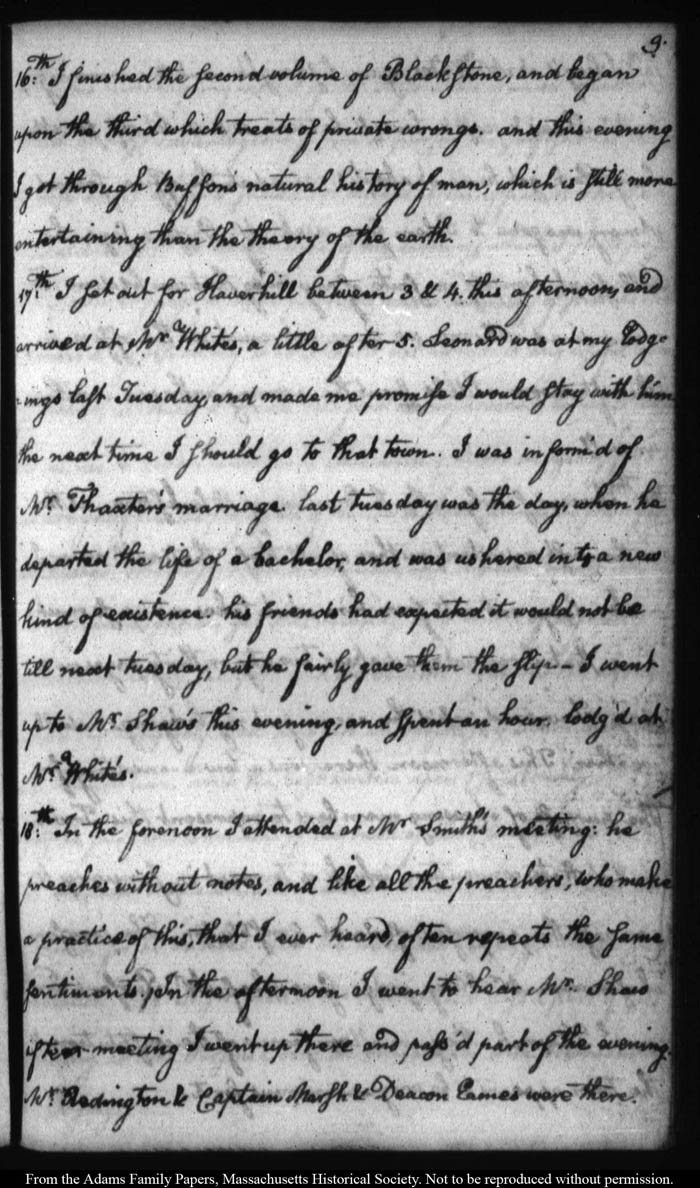 9.
16:th I finished the second volume of Blackstone, and began
upon the third which treats of private wrongs. and this evening
I got through Buffon's natural history of man, which is still more
entertaining than the theory of the earth.
17:th I set out for Haverhill between 3 & 4. this afternoon, and
arrived at Mr. White's, a little after 5. Leonard was at my lodg-
-ings last Tuesday, and made me promise I would stay with him
the next time I should go to that town. I was inform'd of
Mr. Thaxter's marriage. last tuesday was the day, when he
departed the life of a bachelor, and was ushered into a new
kind of existence. his friends had expected it would not be
till next tuesday, but he fairly gave them the slip — I went
up to Mr. Shaw's this evening, and spent an hour. lodg'd at
Mr. White's.
18:th In the forenoon I attended at Mr. Smith's meeting: he
preaches without notes, and like all the preachers, who make
a practice of this, that I ever heard, often repeats the same
sentiments. In the afternoon I went to hear Mr. Shaw
after meeting I went up there and pass'd part of the evening.
Mr. Redington & Captain Marsh & Deacon Eames were there.
From the Adams Family Papers, Massachusetts Historical Society. Not to be reproduced without permission.